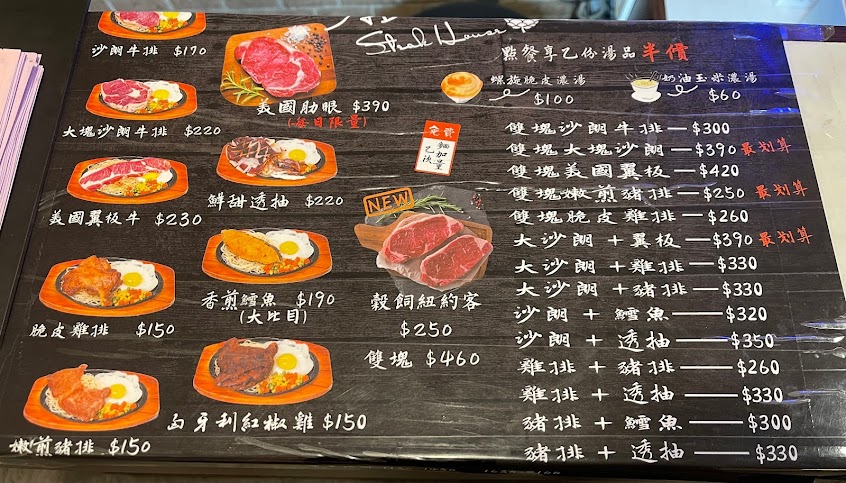 沙朗牛排 $170
大塊沙朗牛排 $220
美國翼板牛 $230
脆皮雞排 $150
嫩煎豬排 $150
美國肋眼 $390
(每日限量)
鮮甜透抽 $220
香煎鱈魚 $190
(大比目)
匈牙利紅椒雞 $150
Steak House
免費
麵加量
乙次
NEW
穀飼紐約客
$250
雙塊 $460
點餐享乙份湯品半價
螺旋脆皮濃湯
$100
奶油玉米濃湯
$60
雙塊沙朗牛排—$300
雙塊大塊沙朗—$390 最划算
雙塊美國翼板—$420
雙塊嫩煎豬排—$250 最划算
雙塊脆皮雞排—$260
大沙朗+翼板—$390 最划算
大沙朗+雞排—$330
大沙朗+豬排—$330
沙朗+鱈魚—$320
沙朗+透抽—$350
雞排+豬排—$260
雞排+透抽—$330
豬排+鱈魚—$300
豬排+透抽—$330